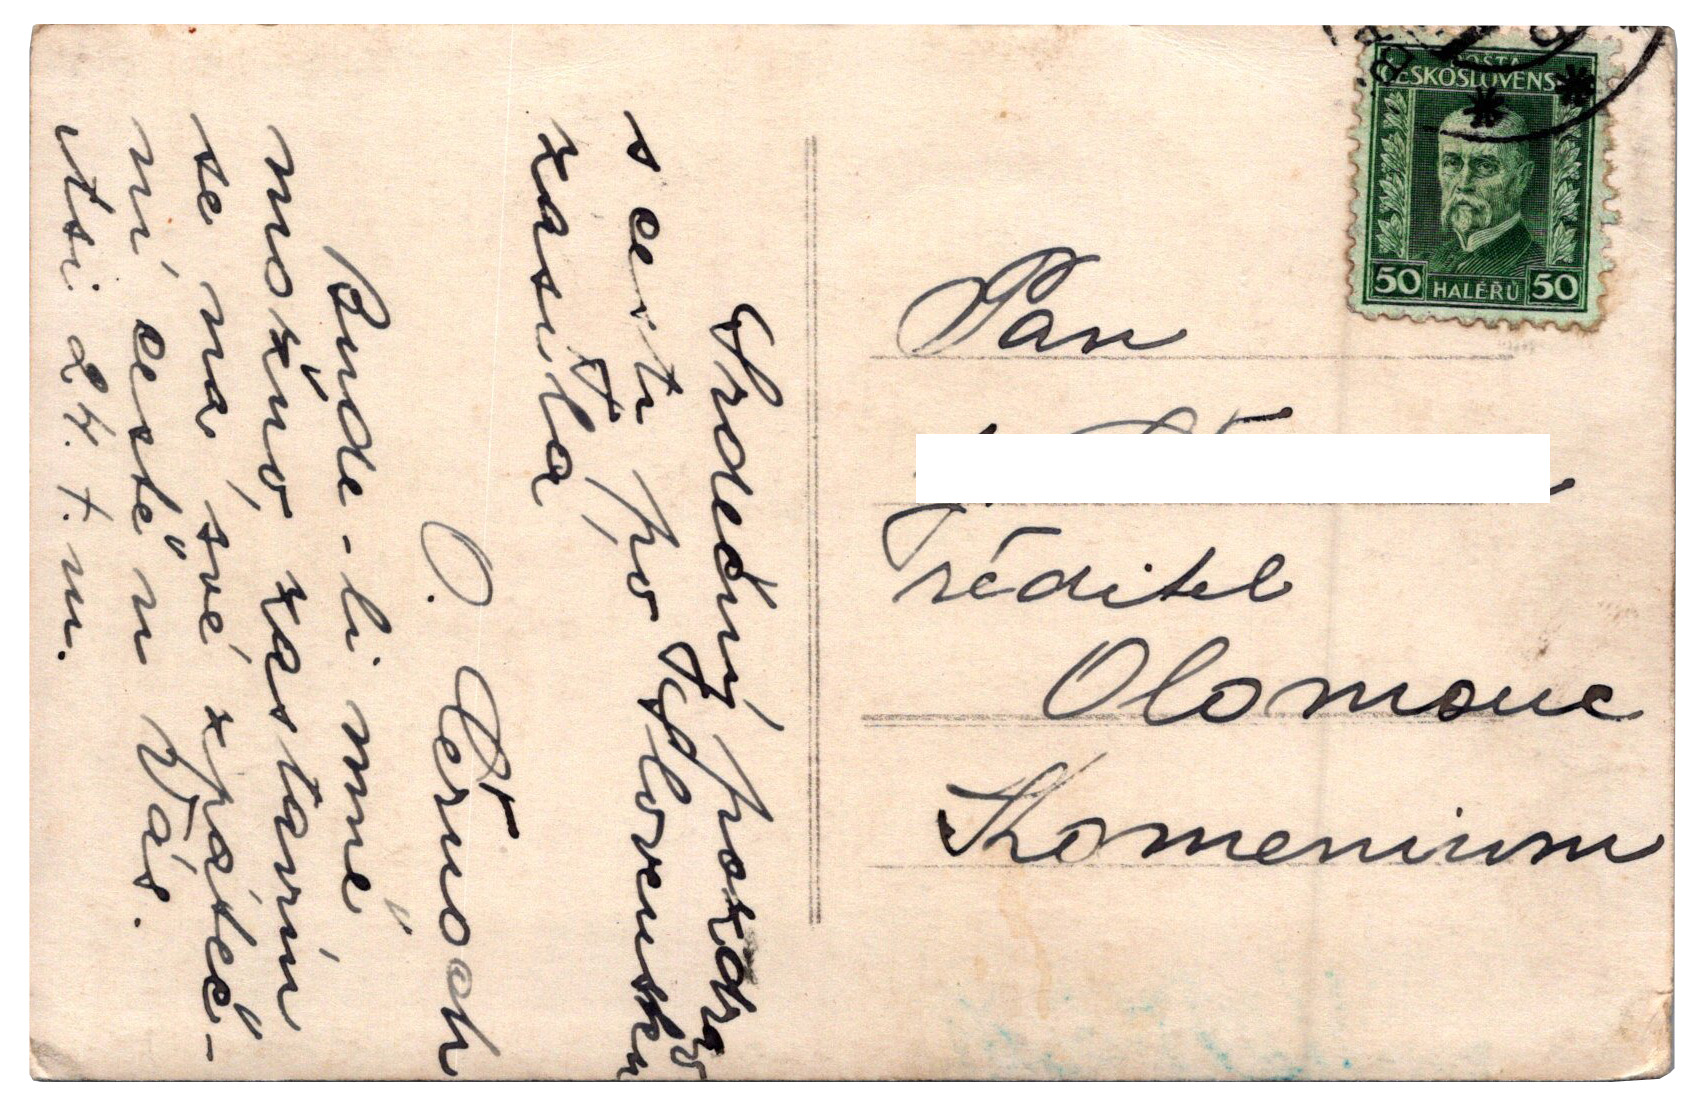 Srdečný pozdrav
s cesty po Slovensku
zasílá
O. Černoch
Bude-li mně
možno, zastavím
se na své zpáteč-
ní cestě u Vás.
Asi 24. t. m.
POŠTA
ČESKOSLOVENS
50 HALÉŘŮ 50
Pan
ředitel
Olomouc
Komenium